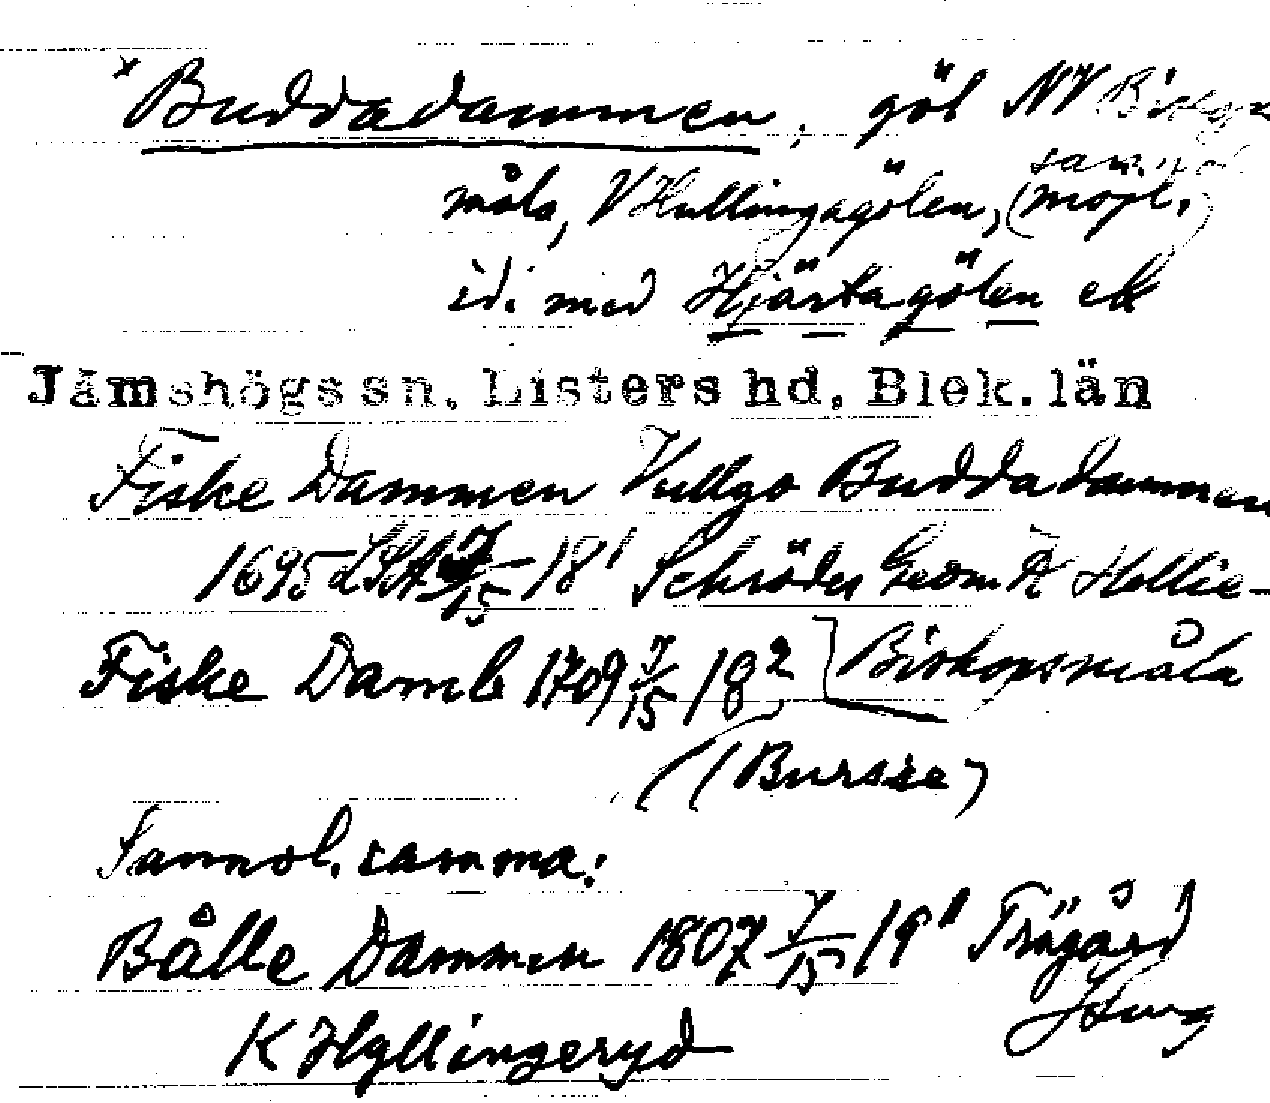 × Buddadammen, göl NV Biskops
måla, V Hullingagölen, (möjl.
sannol.
id. med Hjärtagölen ek
Jämshögs sn, Listers hd, Blek. län
Fiske Dammen Vullgo Buddadammen
1695 LSA 7/15-18¹ Schröder Geom K Hellie-
Fiske Damb 1709 7/15/18² Biskopsmåla
(Bursie)
Sannol. samma:
Bålle Dammen 1807 7/15/19¹ Trägård
K Hyllingeryd